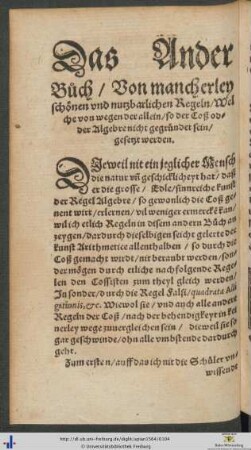 Das Ander
Büch / Von mancherley
schönen vnd nutzbarlichen Regeln / Wel
che von wegen der allein / so der Coß od-
der Algebre nicht gegründet sein /
gesetzt werden.
DJeweil nit ein jeglicher Mensch
die natur vñ geschickligkeyt hat / daß
er die grosse / Edle / sinnreiche kunst
der Regel Algebre / so gewonlich die Coß ge-
nent wirt / erlernen / vil weniger
wil ich etlich Regeln in disem andern Büch an
zeygen / dardurch dieselbigen
kunst Arithmetice allenthalben / so durch die
Coß gemacht wirdt / nit beraubt werden / son
der mögen durch etliche nachfolgende Rege
len den Cossisten zum theyl gleich werden /
Jn sonder / durch die Regel Falsi / quadrata
&c. Wiewol sie / vnd auch alle andere
Regeln der Coß / nach der behendigkeyt in kei
nerley wege zuuergleichen sein / dieweil sie so
gar geschwinde / ohn alle vmbstende dardurch
geht.
Zum ersten / auff das ich nit die Schüler vn/
wissende
http://dl.ub.uni-freiburg.de/diglit/
© Universitätsbibliothek Freiburg